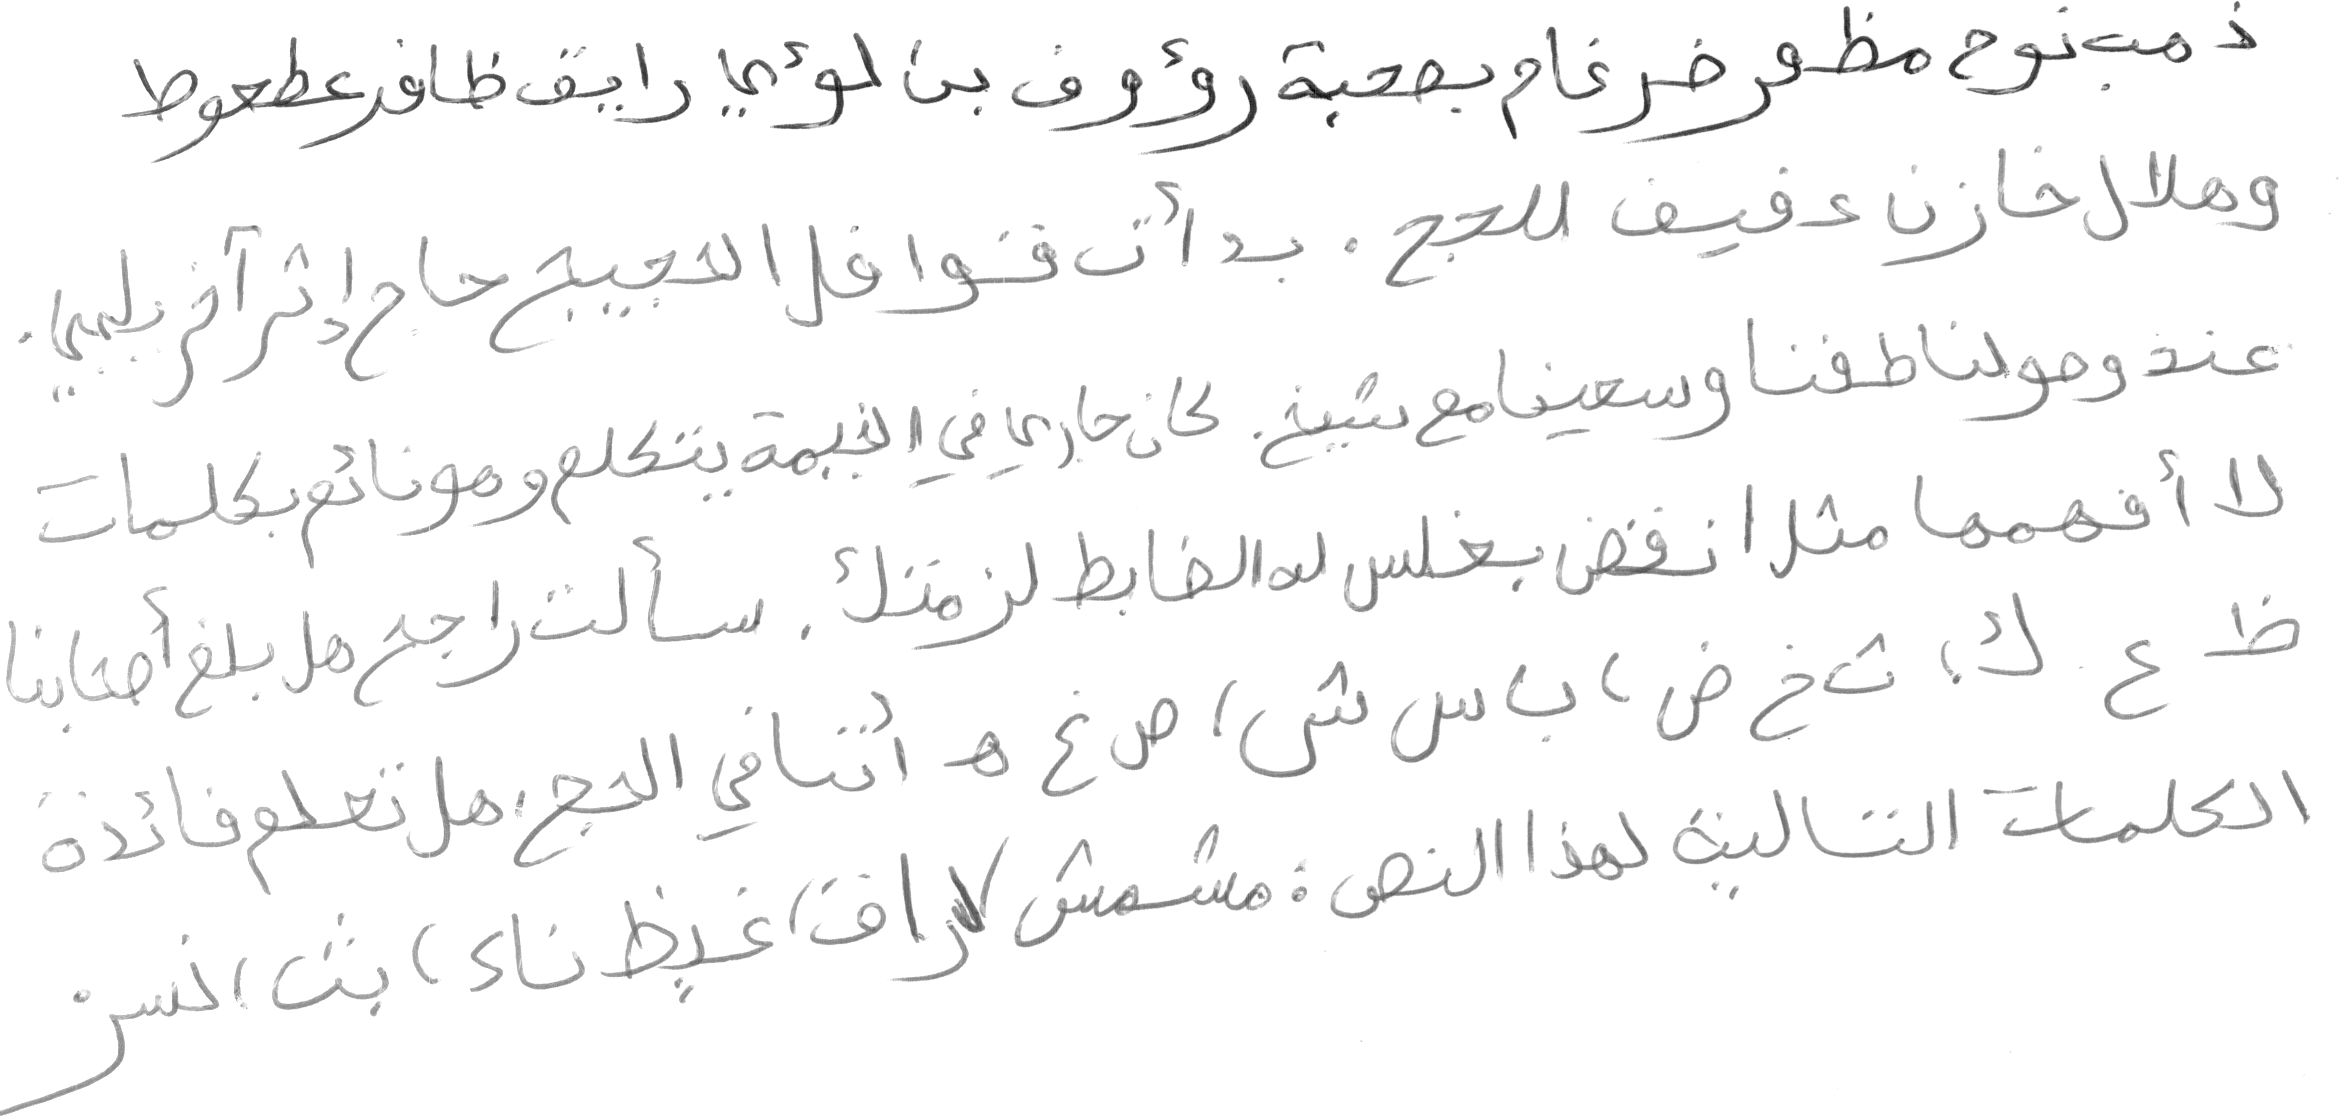 ذهب نوح مظفر ضرغام بصحبة رؤوف بن لؤي رايق ظافر عطعوط
وهلال خازن عفيف للحج. بدأت قوافل الحجيج حاج إثر آخر بلهي.
عند وصولنا طفنا وسعينا مع شيخ. كان جاري في الخيمة يتكلم وهو نائم بكلمات
لا أفهمها مثل انقض بغلس له الضابط لزمتك. سألت راجح هل بلغ أصحابنا
ظ ع ك؛ ث خ ض، ب س ش، ص غ هـ أننا في الحج، هل تعلم فائدة
الكلمات التالية لهذا النص: مشمش لا راق، غيظ ناء، بث، نسر.